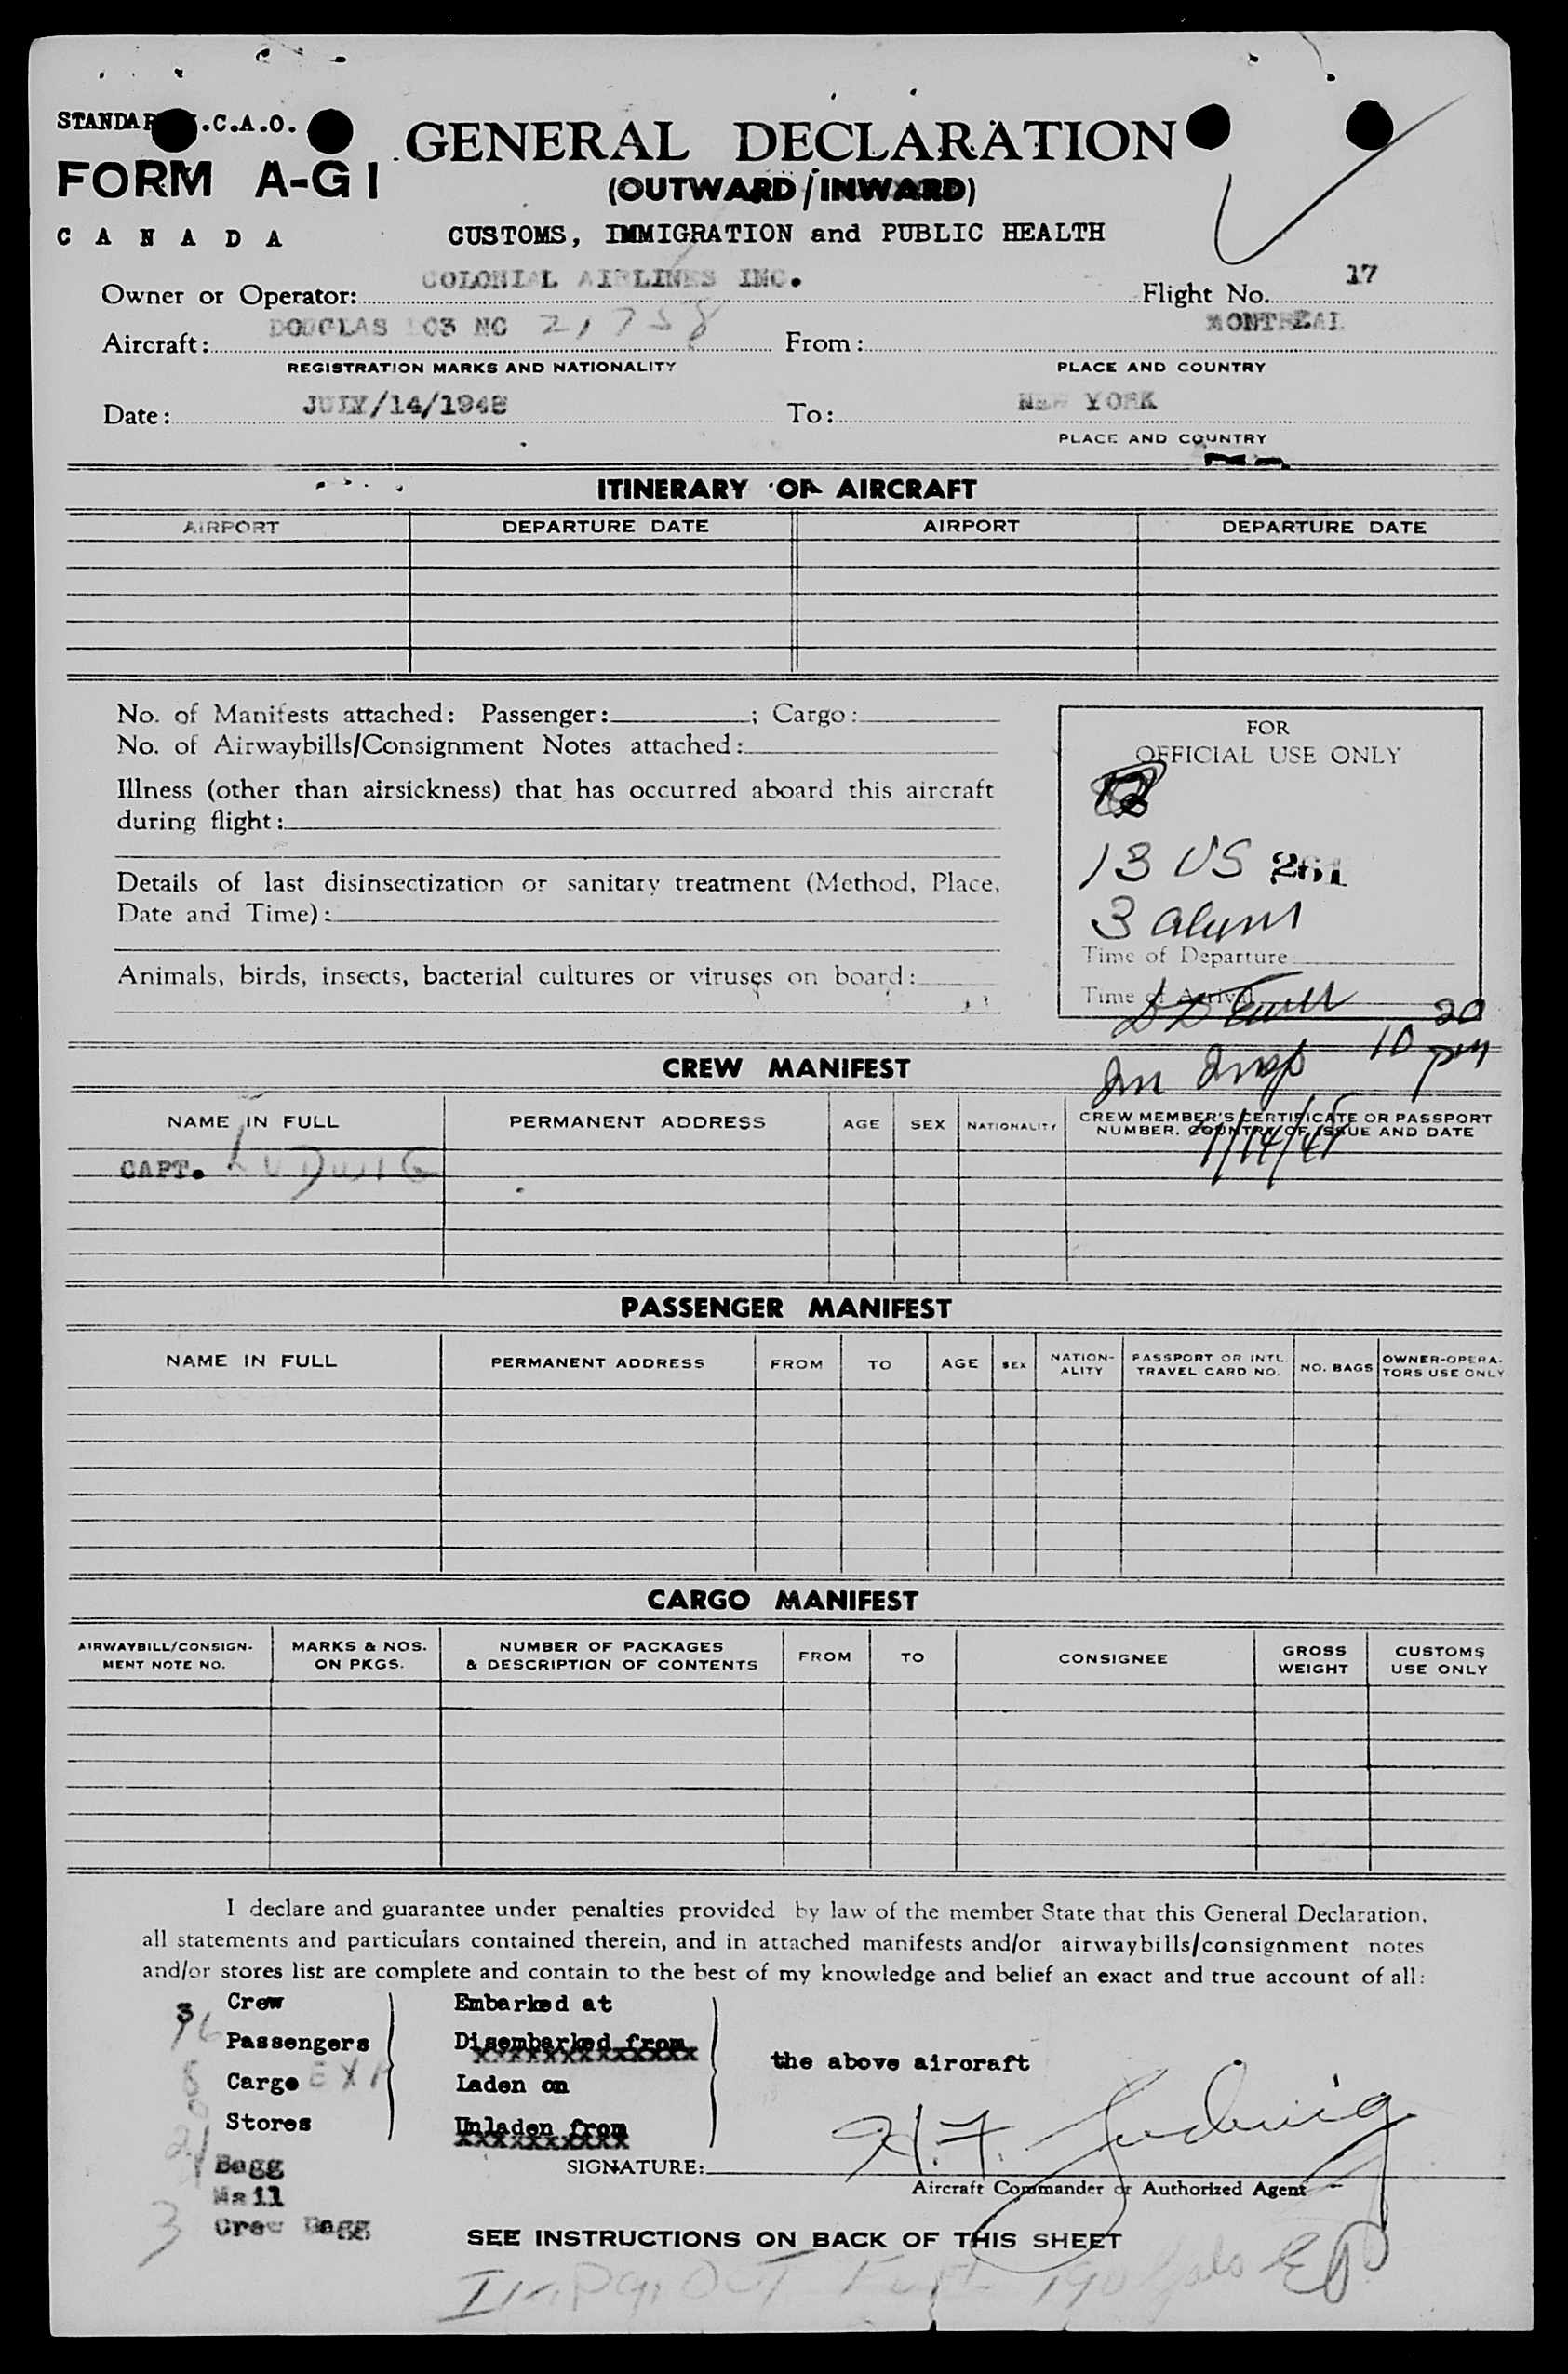 STANDARD I.C.A.O.
FORM A-G1
CANADA
GENERAL DECLARATION
(OUTWARD/INWARD)
CUSTOMS, IMMIGRATION and PUBLIC HEALTH
Owner or Operator: COLONIAL AIRLINES INC. Flight No. 17
Aircraft: DOUGLAS DC3 NC 21758 From: MONTREAL
REGISTRATION MARKS AND NATIONALITY PLACE AND COUNTRY
Date: JULY/14/1948 To: NEW YORK
PLACE AND COUNTRY
ITINERARY OF AIRCRAFT
AIRPORT DEPARTURE DATE AIRPORT DEPARTURE DATE
No. of Manifests attached: Passenger: ; Cargo:
No. of Airwaybills/Consignment Notes attached:
Illness (other than airsickness) that has occurred aboard this aircraft
during flight:
Details of last disinsectization or sanitary treatment (Method, Place,
Date and Time):
Animals, birds, insects, bacterial cultures or viruses on board:
FOR
OFFICIAL USE ONLY
13 US 261
3 aliens
Time of Departure
Time of Arrival
Im Insp 10 20 pm
7/14/48
CREW MANIFEST
NAME IN FULL PERMANENT ADDRESS AGE SEX NATIONALITY CREW MEMBER'S CERTIFICATE OR PASSPORT
NUMBER. COUNTRY OF ISSUE AND DATE
CAPT. LUDWIG
PASSENGER MANIFEST
NAME IN FULL PERMANENT ADDRESS FROM TO AGE SEX NATION-
ALITY PASSPORT OR INTL.
TRAVEL CARD NO. NO. BAGS OWNER-OPERA-
TORS USE ONLY
CARGO MANIFEST
AIRWAYBILL/CONSIGN-
MENT NOTE NO. MARKS & NOS.
ON PKGS. NUMBER OF PACKAGES
& DESCRIPTION OF CONTENTS FROM TO CONSIGNEE GROSS
WEIGHT CUSTOMS
USE ONLY
I declare and guarantee under penalties provided by law of the member State that this General Declaration,
all statements and particulars contained therein, and in attached manifests and/or airwaybills/consignment notes
and/or stores list are complete and contain to the best of my knowledge and belief an exact and true account of all:
3 Crew Embarked at
16 Passengers Disembarked from
the above aircraft
8 Cargo EXP Laden on
0 Stores Unladen from
21 Bagg
Mail
3 Crew Bagg
SIGNATURE: H.F. Ludwig
Aircraft Commander or Authorized Agent
SEE INSTRUCTIONS ON BACK OF THIS SHEET
190 gals